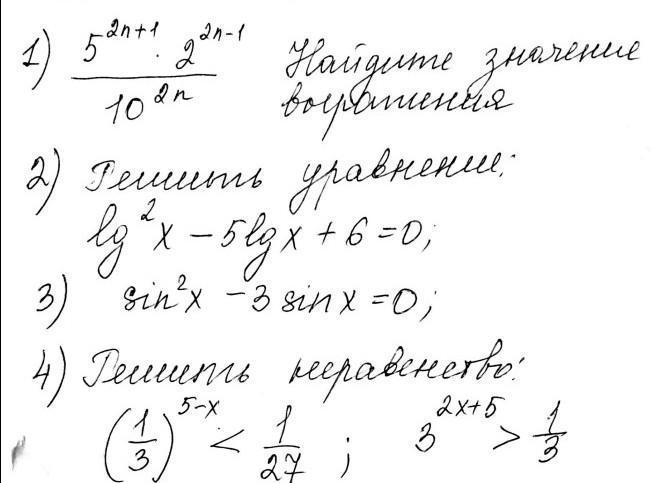 1) (5^(2n+1) · 2^(2n-1)) / 10^(2n) Найдите значение выражения
2) Решить уравнение:
lg²x - 5lgx + 6 = 0;
3) sin²x - 3 sinx = 0;
4) Решить неравенство:
(1/3)^(5-x) < 1/27 ; 3^(2x+5) > 1/3